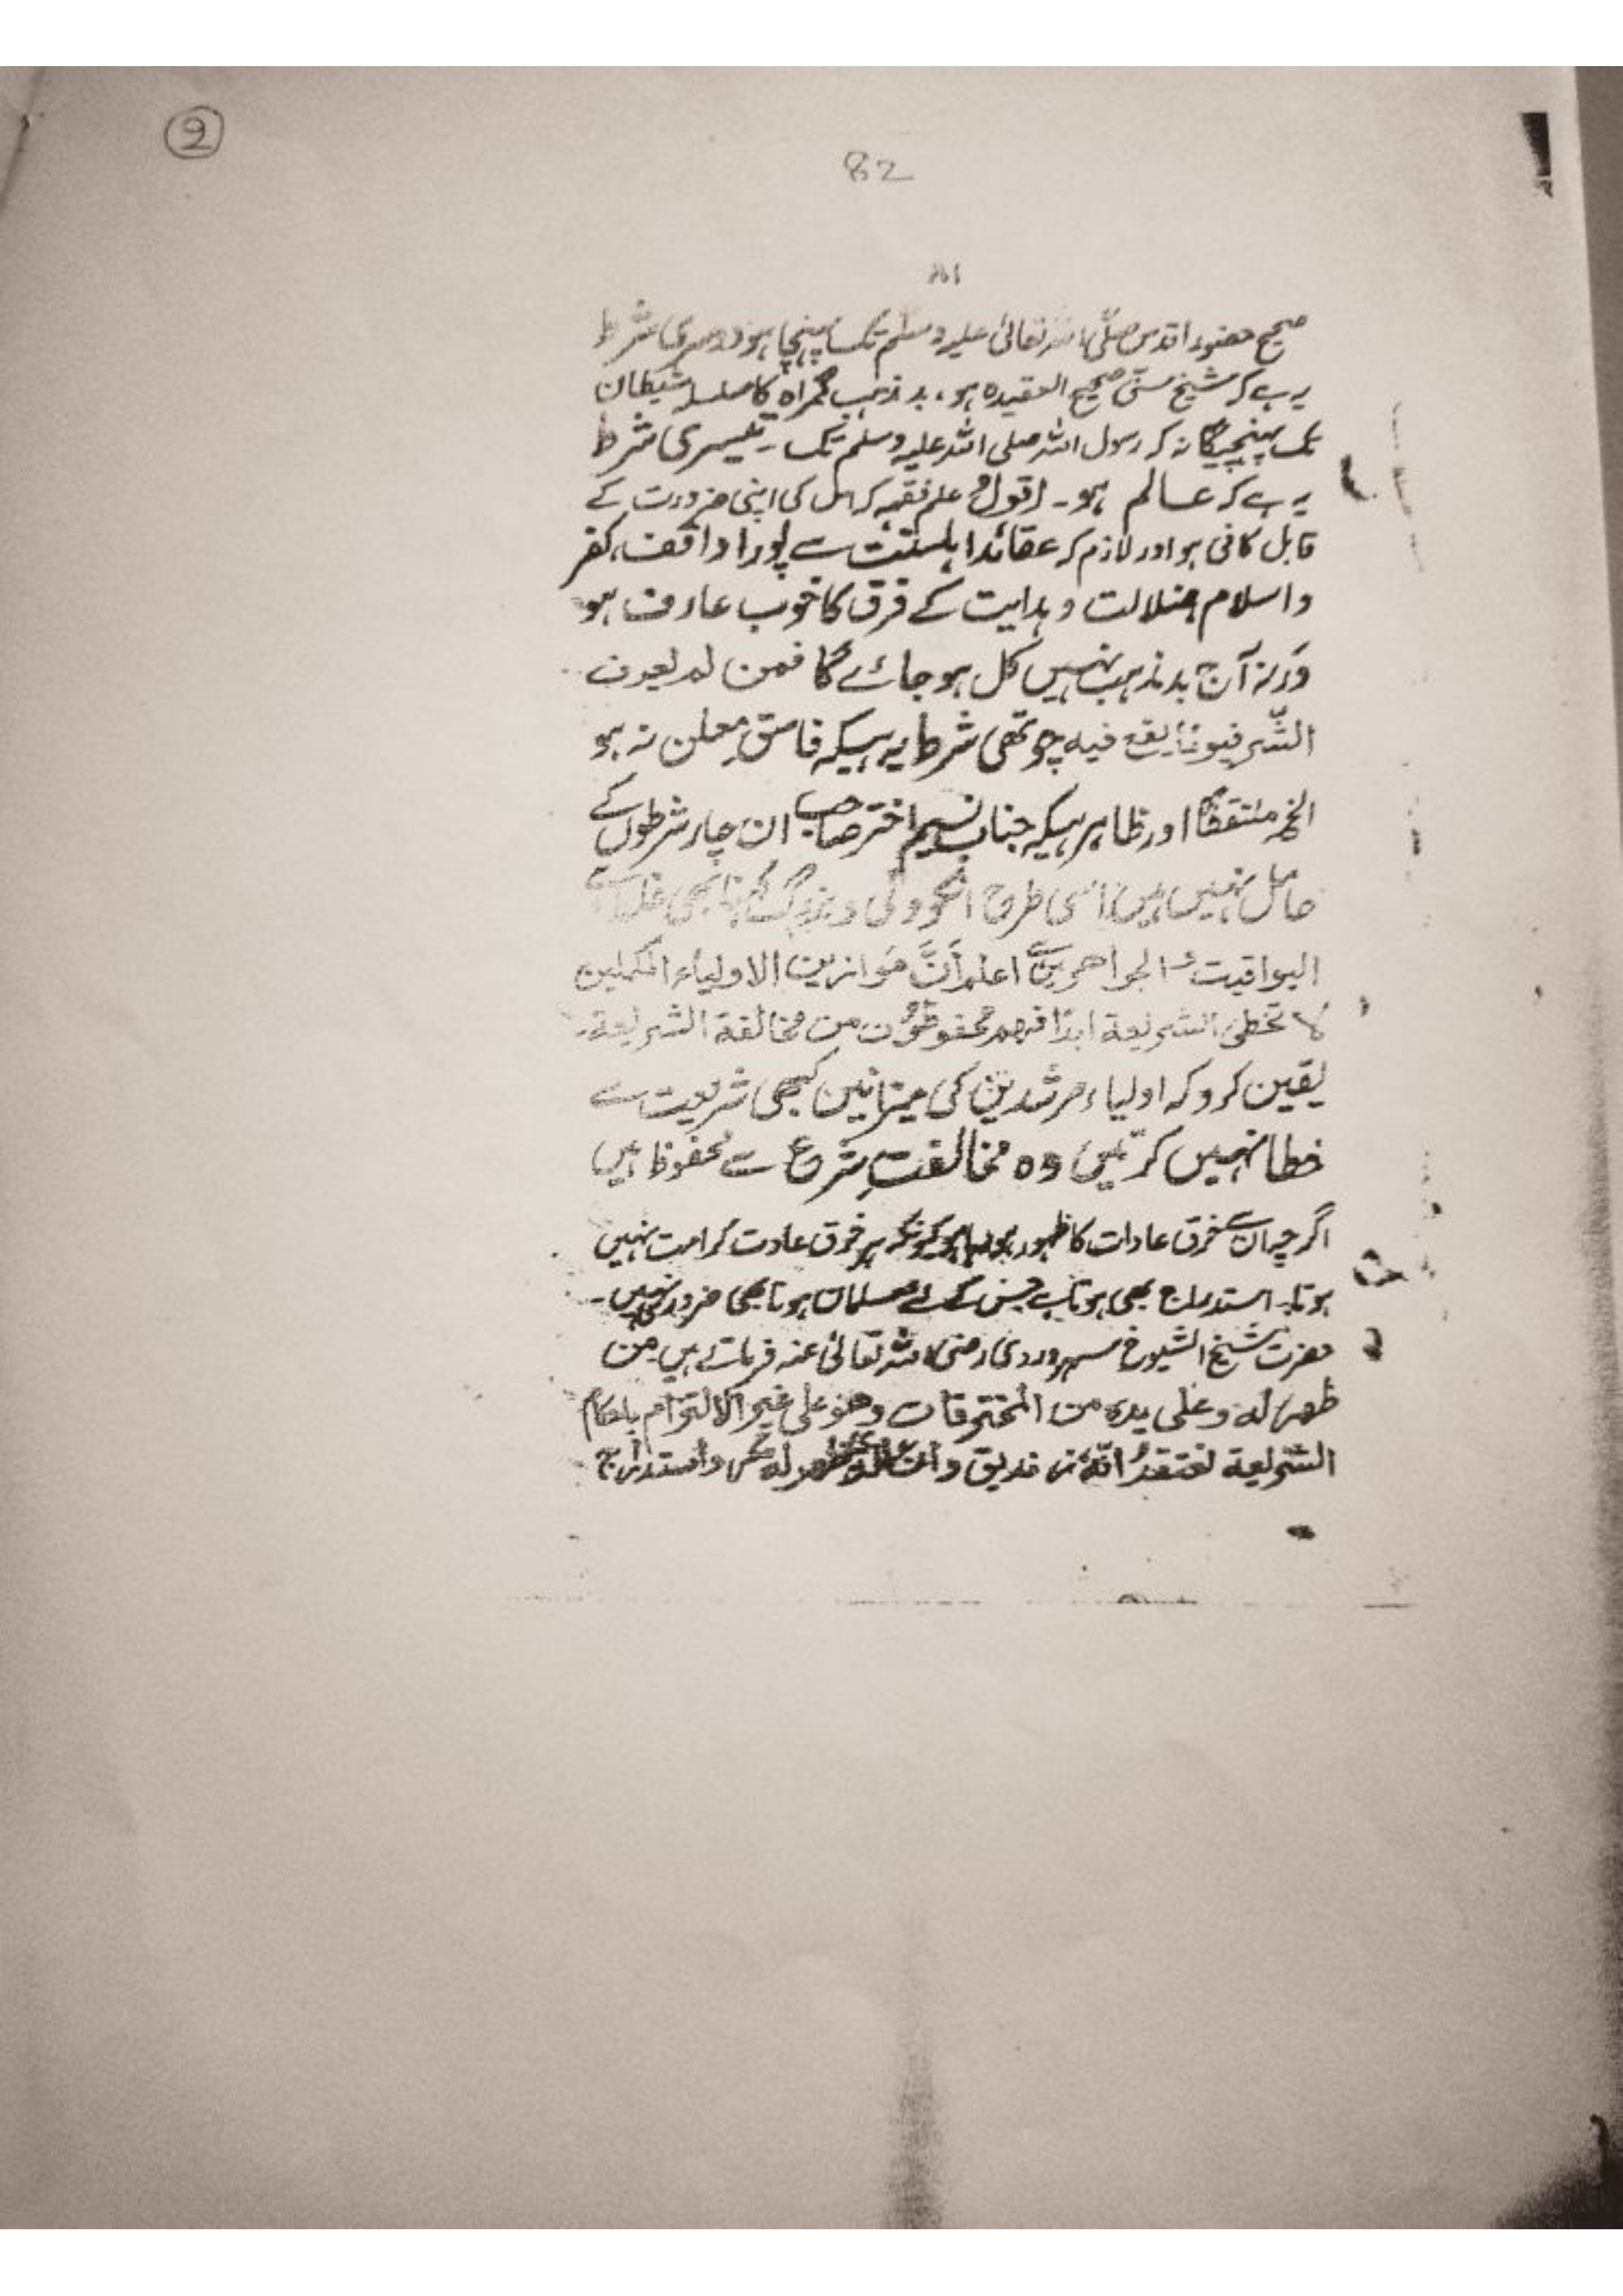 2
82
صحیح حضور اقدس صلّی اللہ تعالیٰ علیہ وسلم تک پہنچا ہو دوسری شرط
یہ ہے کہ شیخ سنّی صحیح العقیدہ ہو، بد مذہب گمراہ کا سلسلہ شیطان
تک پہنچیگا نہ کہ رسول اللہ صلی اللہ علیہ وسلم تک ۔ تیسری شرط
یہ ہے کہ عالم ہو ۔ اقول علم فقہ کہ اس کی اپنی ضرورت کے
قابل کافی ہو اور لازم کہ عقائد اہلسنّت سے پورا واقف، کفر
و اسلام ضلالت و ہدایت کے فرق کا خوب عارف ہو
ورنہ آج بد مذہب نہیں کل ہو جائے گا فمن لم یعرف
الشّر فیوما یقع فیہ چوتھی شرط یہ ہیکہ فاسق معلن نہ ہو
الخ ملتقطًا اور ظاہر ہیکہ جناب نسیم اختر صاحب ان چار شرطوں کے
حامل نہیں ہیں اسی طرح انکو ولی و بزرگ کہنا بھی غلط ہے
الیواقیت و الجواهر میں ہے اعلم أنَّ موازین الاولیاء المکملین
لا تخطیٔ الشریعة ابدًا فهم محفوظون من مخالفة الشریعة
یقین کرو کہ اولیاء مرشدین کی میزانیں کبھی شریعت سے
خطا نہیں کرتیں وہ مخالفتِ شرع سے محفوظ ہیں
اگرچہ ان سے خرق عادات کا ظہور ہو کیونکہ ہر خرق عادت کرامت نہیں
ہوتا ۔ استدراج بھی ہوتا ہے جس کے لئے مسلمان ہونا بھی ضرور نہیں ۔
حضرت شیخ الشیوخ سہروردی رضی اللہ تعالیٰ عنہ فرماتے ہیں من
ظهر له وعلی یده من المخترقات وهو علی غیر الالتزام باحکام
الشریعة نعتقد انّه زندیق وان الذی ظهر له مکر و استدراج